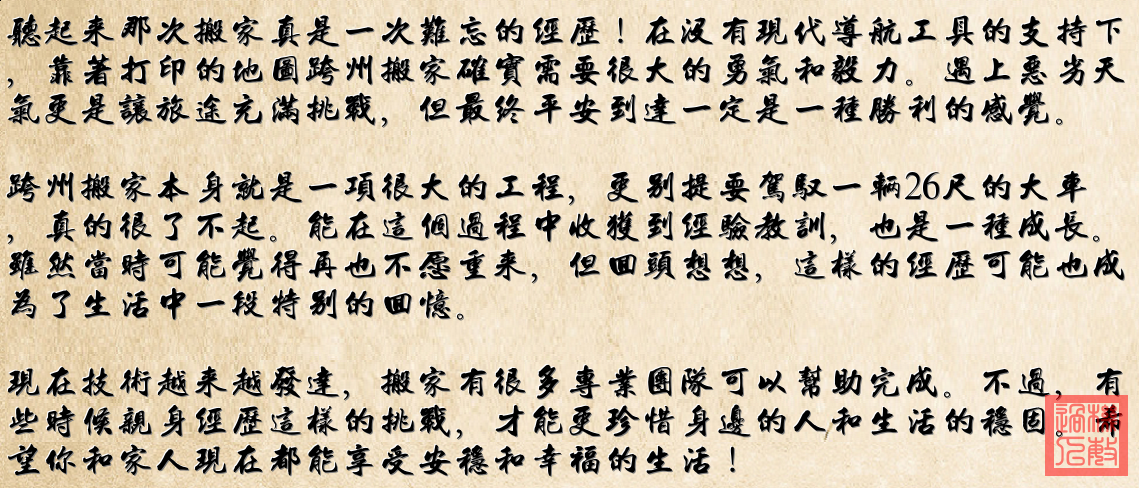 聽起来那次搬家真是一次難忘的經歷！在沒有現代導航工具的支持下
，靠著打印的地圖跨州搬家確實需要很大的勇氣和毅力。遇上惡劣天
氣更是讓旅途充滿挑戰，但最終平安到達一定是一種勝利的感覺。
跨州搬家本身就是一項很大的工程，更别提要駕馭一輛26尺的大車
，真的很了不起。能在這個過程中收獲到經驗教訓，也是一種成長。
雖然當時可能覺得再也不愿重来，但回頭想想，這樣的經歷可能也成
為了生活中一段特别的回憶。
現在技術越来越發達，搬家有很多專業團隊可以幫助完成。不過，有
些時候親身經歷這樣的挑戰，才能更珍惜身邊的人和生活的穩固。希
望你和家人現在都能享受安穩和幸福的生活！